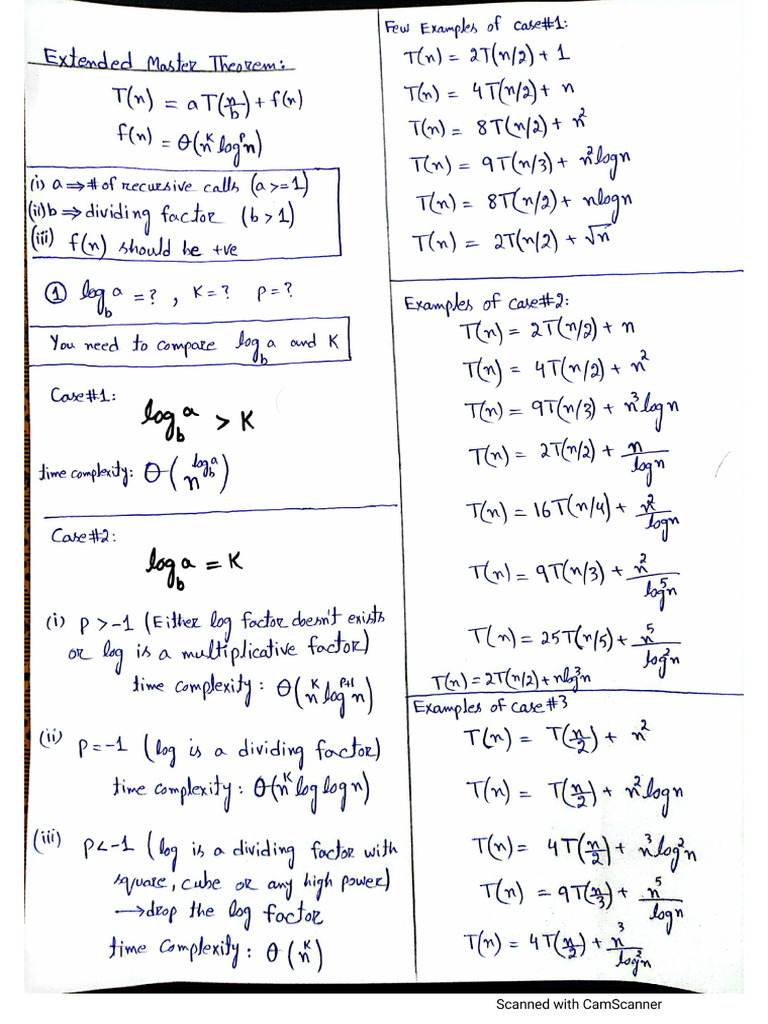 Extended Master Theorem:
T(n) = aT(n/b) + f(n)
f(n) = θ(n^k log^p n)
(i) a ⇒ # of recursive calls (a >= 1)
(ii) b ⇒ dividing factor (b > 1)
(iii) f(n) should be +ve
① log_b a = ? , K = ? P = ?
You need to compare log_b a and K
Case#1:
log_b a > K
time complexity: θ(n^(log_b a))
Case#2:
log_b a = K
(i) P > -1 (Either log factor doesn't exists
or log is a multiplicative factor)
time complexity: θ(n^K log^(P+1) n)
(ii) P = -1 (log is a dividing factor)
time complexity: θ(n^K log log n)
(iii) P < -1 (log is a dividing factor with
square, cube or any high power)
→ drop the log factor
time complexity: θ(n^K)
Few Examples of Case#1:
T(n) = 2T(n/2) + 1
T(n) = 4T(n/2) + n
T(n) = 8T(n/2) + n²
T(n) = 9T(n/3) + n² log n
T(n) = 8T(n/2) + n log n
T(n) = 2T(n/2) + √n
Examples of Case#2:
T(n) = 2T(n/2) + n
T(n) = 4T(n/2) + n²
T(n) = 9T(n/3) + n³ log n
T(n) = 2T(n/2) + n/log n
T(n) = 16T(n/4) + n²/log n
T(n) = 9T(n/3) + n²/log⁵ n
T(n) = 25T(n/5) + n⁵/log² n
T(n) = 2T(n/2) + n log³ n
Examples of Case#3
T(n) = T(n/2) + n²
T(n) = T(n/2) + n² log n
T(n) = 4T(n/2) + n³ log² n
T(n) = 9T(n/3) + n⁵/log n
T(n) = 4T(n/2) + n³/log² n
Scanned with CamScanner